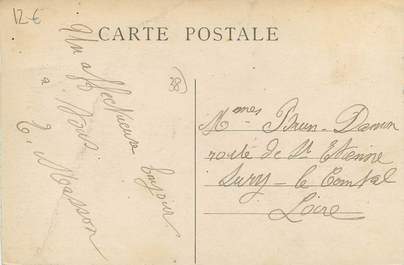 12€
CARTE POSTALE
38
Un affectueux bonjour
à vous
E. Masson
Mmes Brun-Damon
route de St Etienne
Sury-le Comtal
Loire